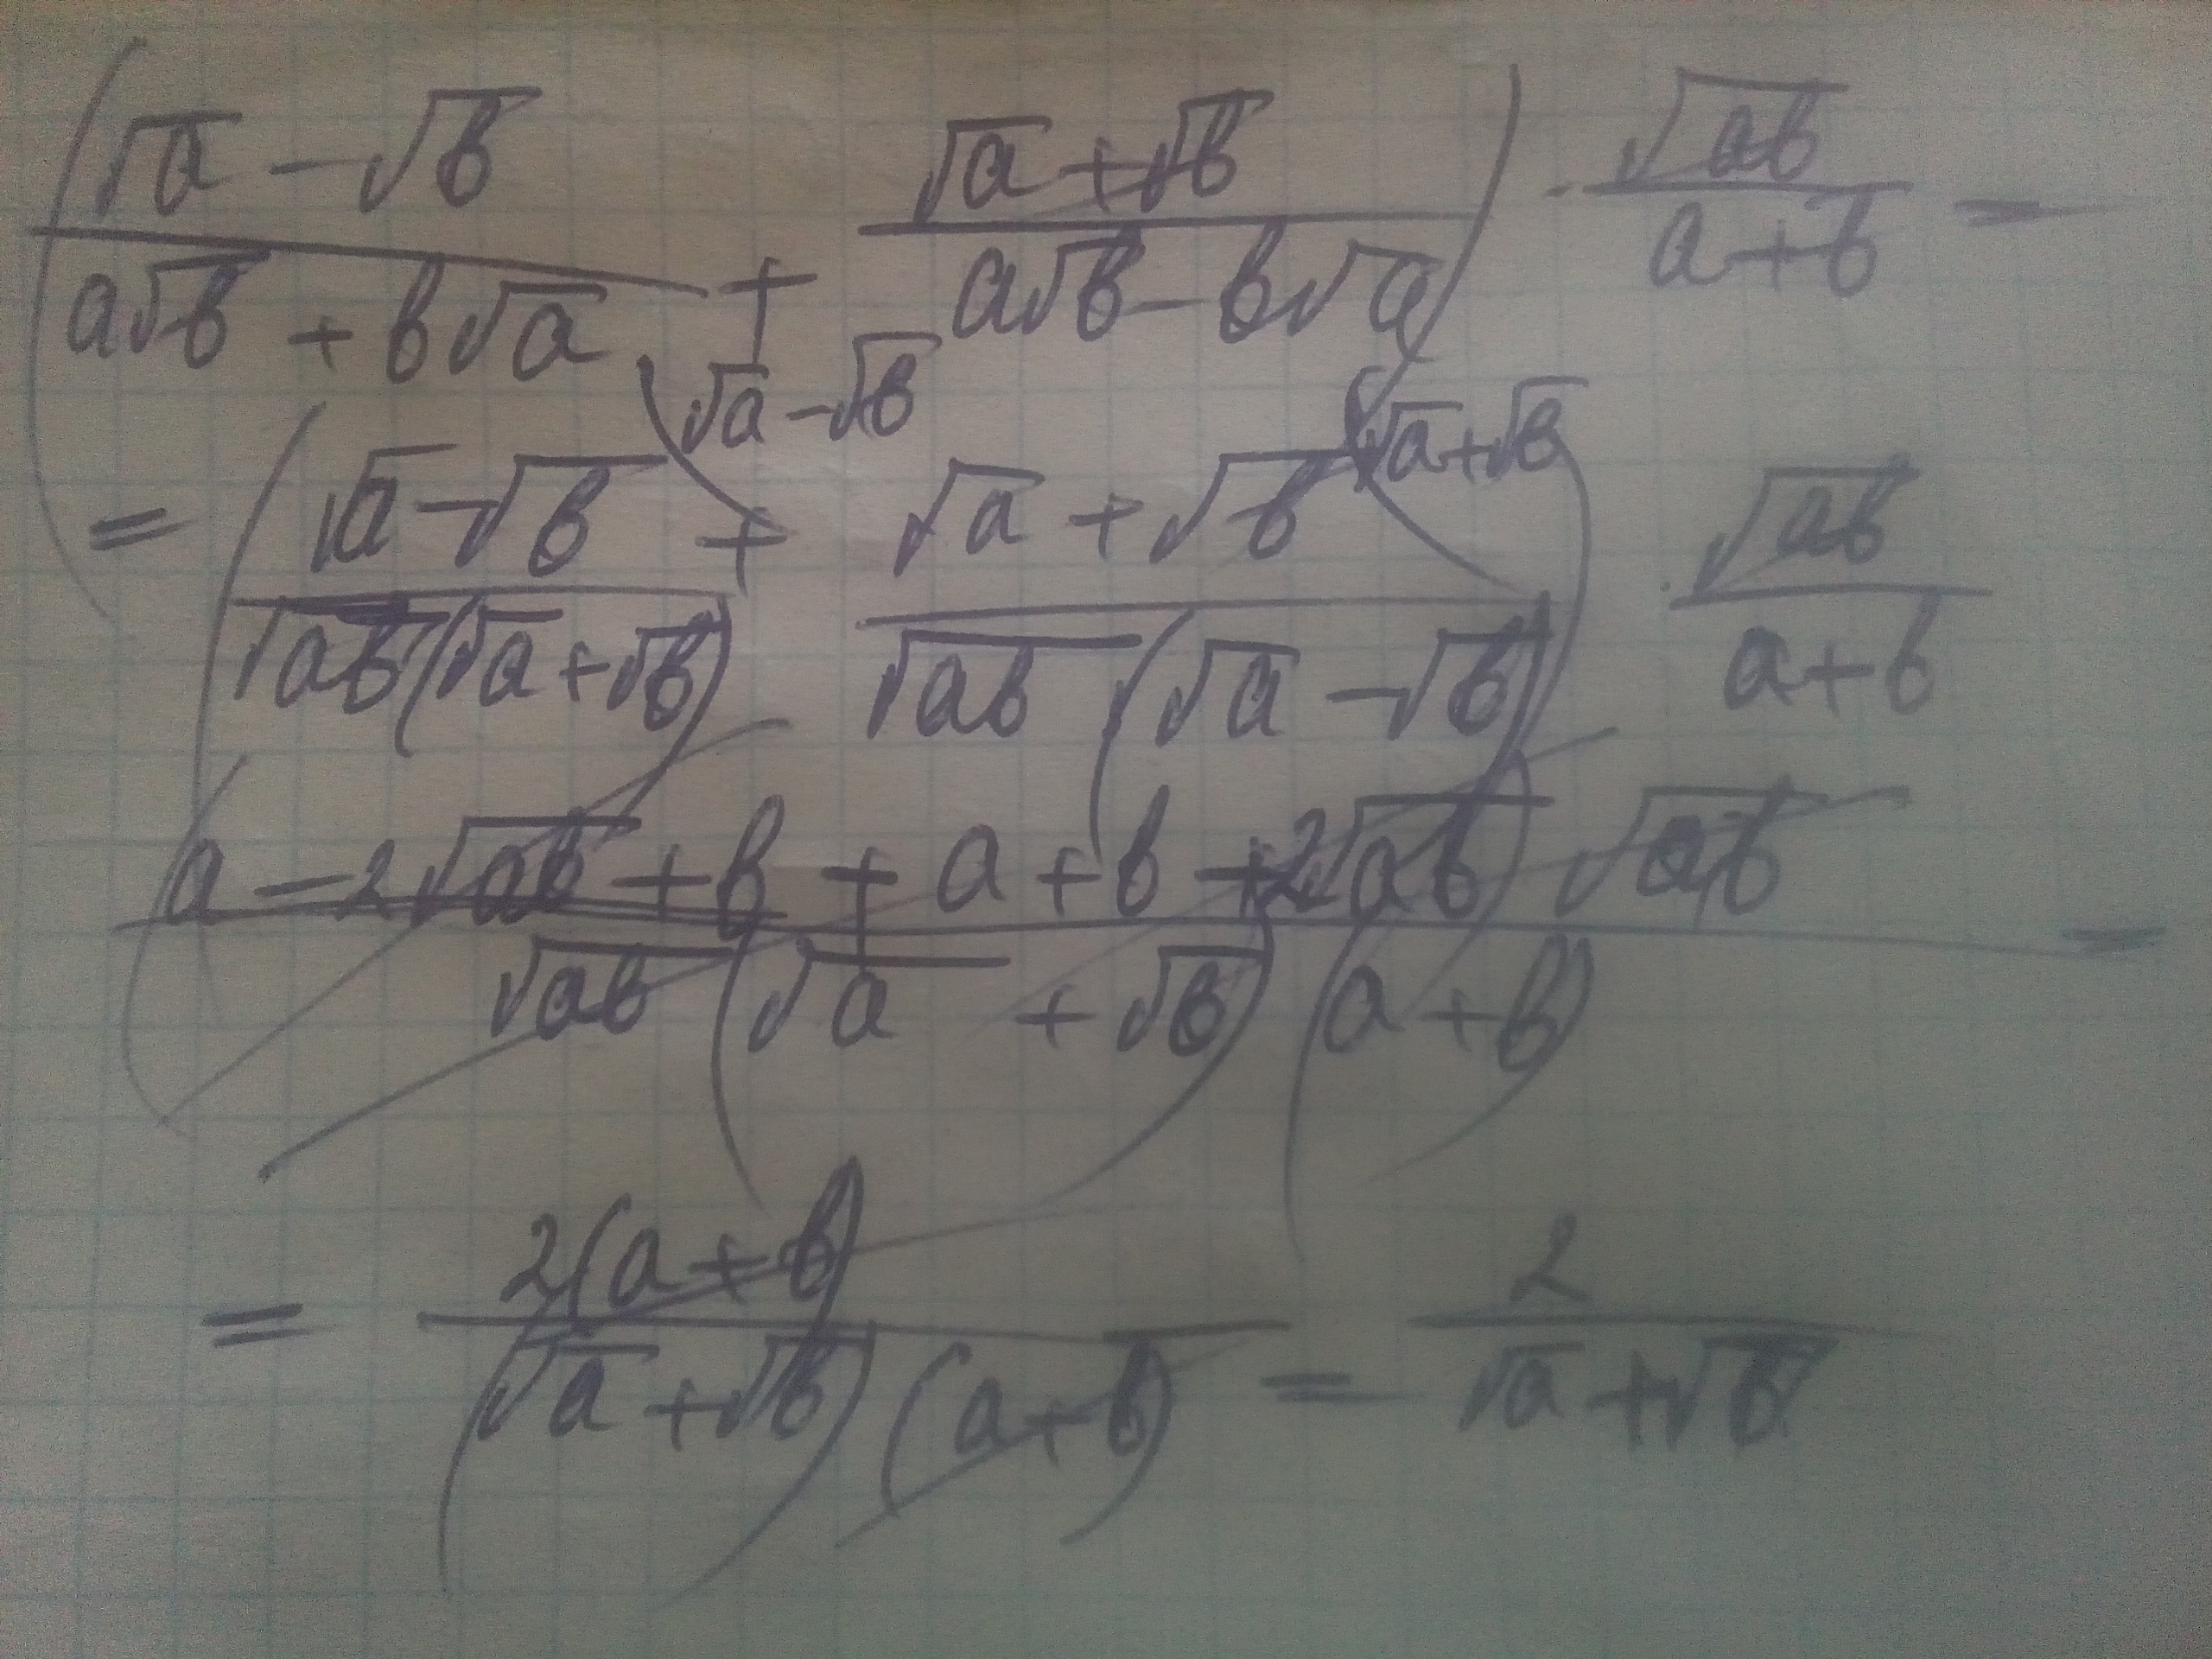 (√a - √b / a√b + b√a + √a + √b / a√b - b√a) · √ab / a + b =
= (√a - √b / √ab(√a + √b) \√a - √b + √a + √b / √ab(√a - √b) \√a + √b) · √ab / a + b
(a - 2√ab + b + a + b + 2√ab) √ab / √ab (√a + √b) (a + b) =
= 2(a + b) / (√a + √b) (a + b) = 2 / √a + √b